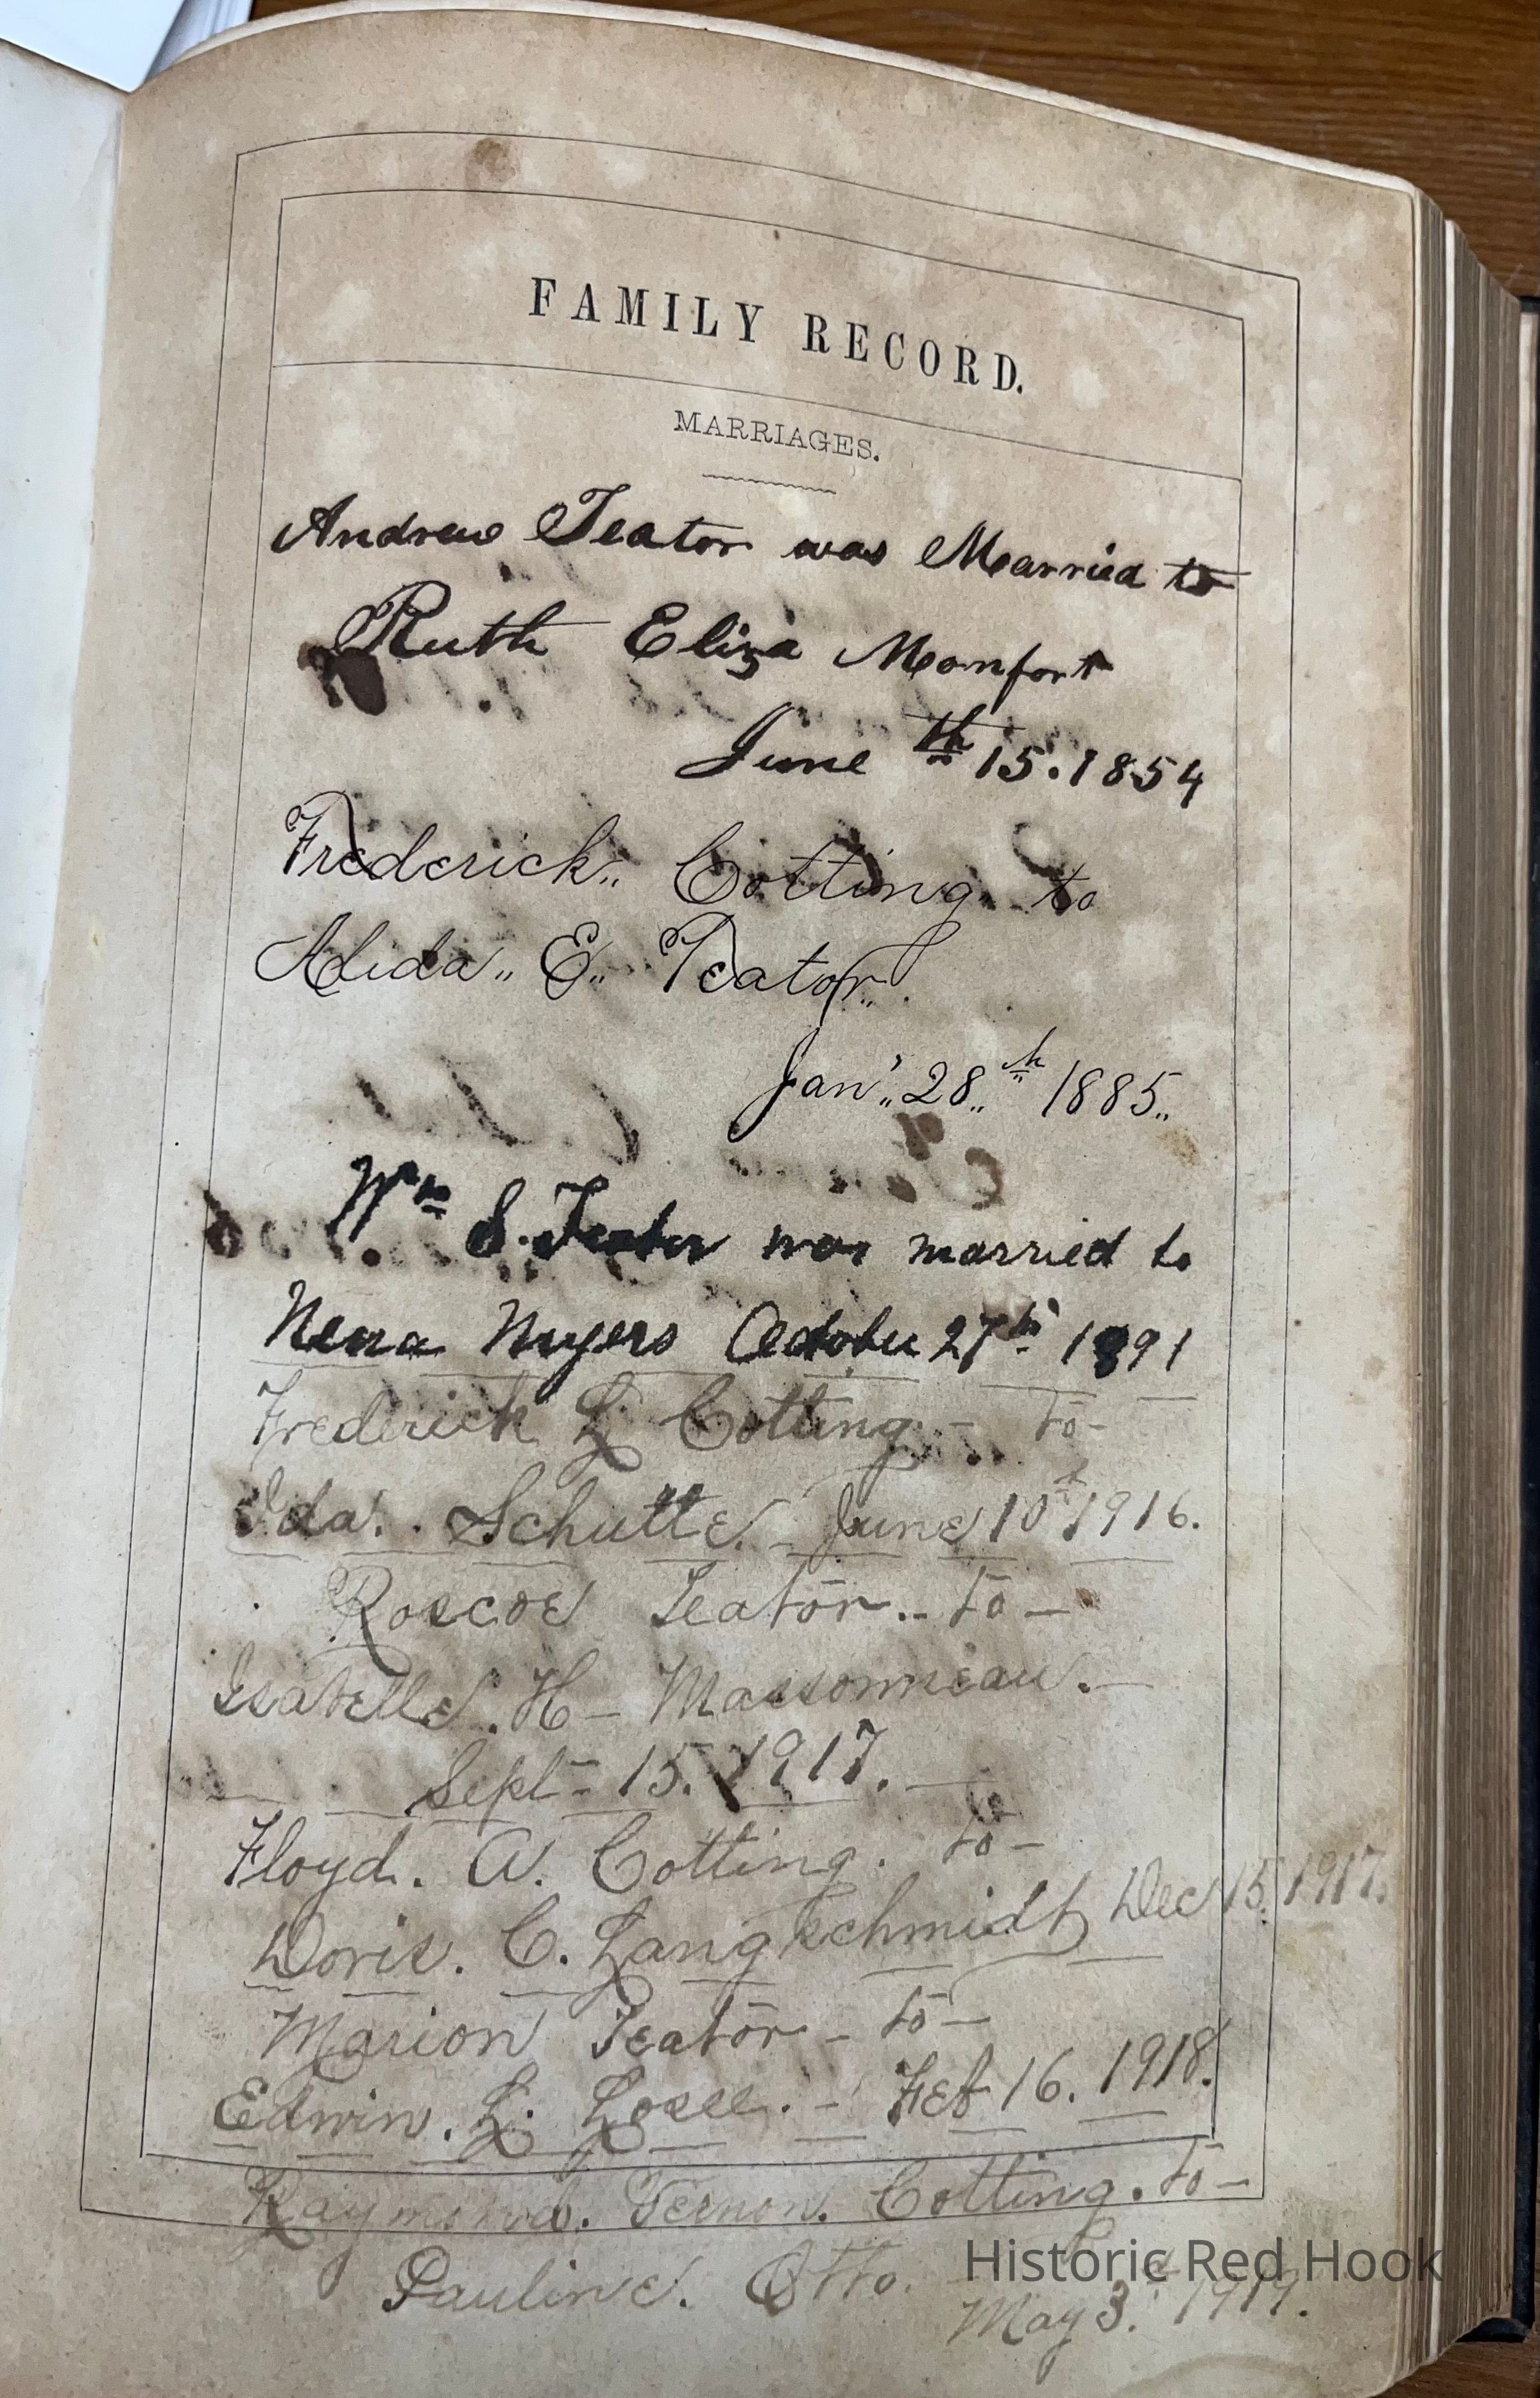 FAMILY RECORD.
MARRIAGES.
Andrew Teator was Married to
Ruth Eliza Monfort
June th 15. 1854
Frederick,, Cotting,, to
Alida,, E,, Teator,,.
Jan',, 28,, th 1885,,
Wm S. Teator was married to
Nena Myers October 27th 1891
Frederick L Cotting - to-
Ida. Schutte. June 10 1916.
Roscoe Teator.- to -
Isabelle. H - Massonneau. -
Sept- 15. 1917.
Floyd. A. Cotting. to -
Doris. C. Langschmidt Dec 15. 1917.
Marion Teator - to -
Edwin. L. Losee. - Feb 16. 1918.
Raymond. Vernon. Cotting. to -
Pauline. Otto.
May 3. 1919.
Historic Red Hook